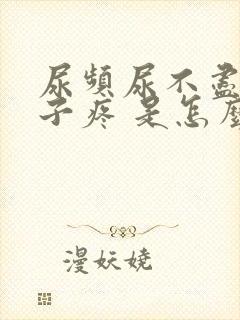 尿頻尿不盡
子疼 是怎麼
漫妖嬈